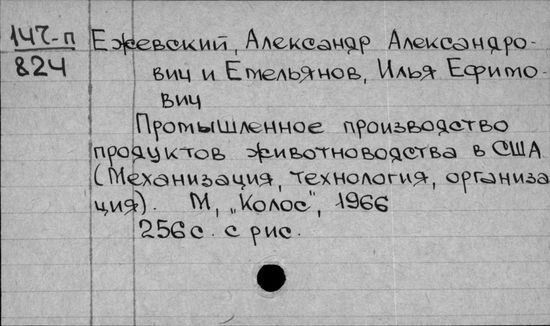 147-п Ежевский, Александр Александро-
824 вич и Емельянов, Илья Ефимо-
вич
Промышленное производство
продуктов животноводства в США
(Механизация, технология, организа
ция). М, „Колос", 1966
256 с. с рис.